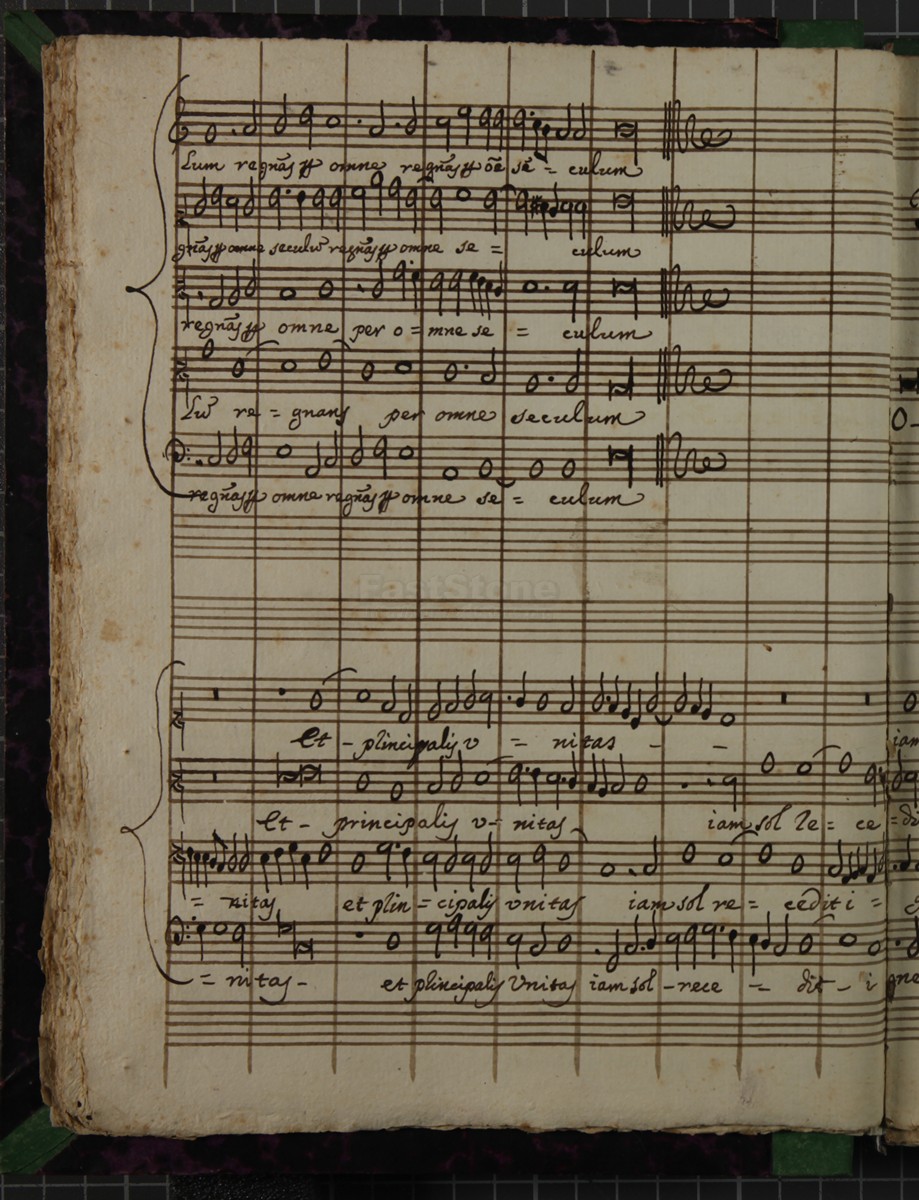 Cum regnãs p omne regnãs p õe sẽ = culum
gnãs p omne seculũ regnãs p omne se = culum
regnãs p omne per o = mne se = culum
Cũ re = gnans per omne seculum
regnãs p omne regnãs p omne se = culum
FastStone
Et - plincipalis v = nitas - -
iam
Et - principalis v - nitas iam sol re = ce = di
= nitas et plin = cipalis vnitas iam sol re = cedit i =
= nitas - et plincipalis Vnitas iam sol - rece = dit - i gne